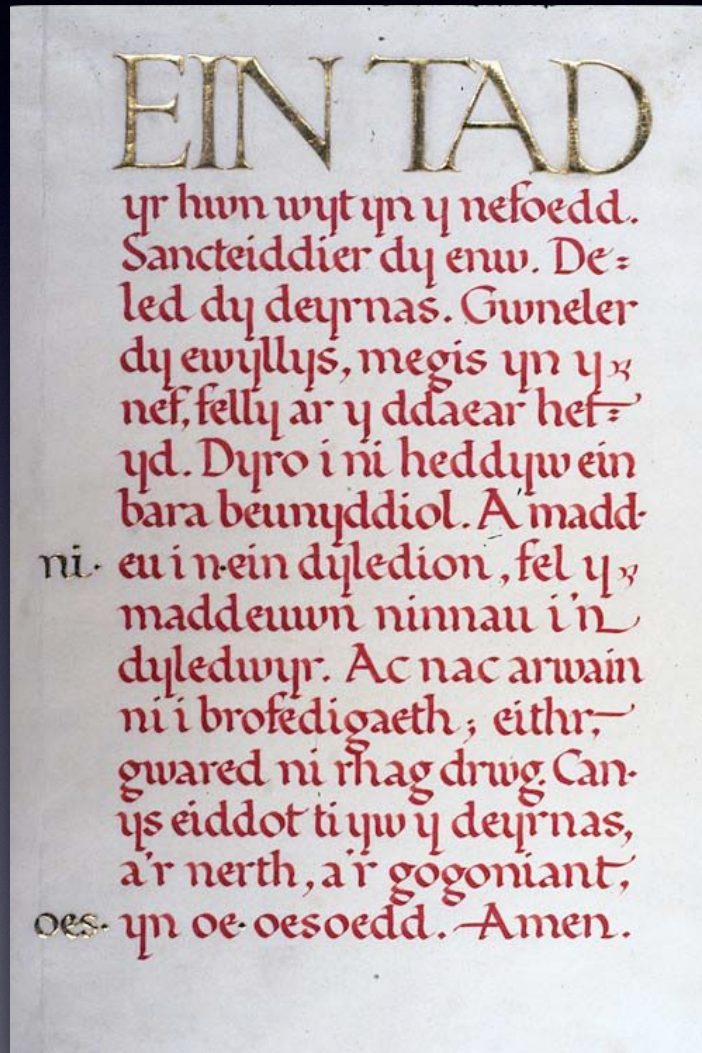 EIN TAD
yr hwn wyt yn y nefoedd.
Sancteiddier dy enw. De=
led dy deyrnas. Gwneler
dy ewyllys, megis yn y
nef, felly ar y ddaear hef=
yd. Dyro i ni heddyw ein
bara beunyddiol. A madd-
ni· eu i n·ein dyledion, fel y
maddeuwn ninnau i'n
dyledwyr. Ac nac arwain
ni i brofedigaeth; eithr,
gwared ni rhag drwg. Can-
ys eiddot ti yw y deyrnas,
a'r nerth, a'r gogoniant,
oes· yn oe·oesoedd. Amen.